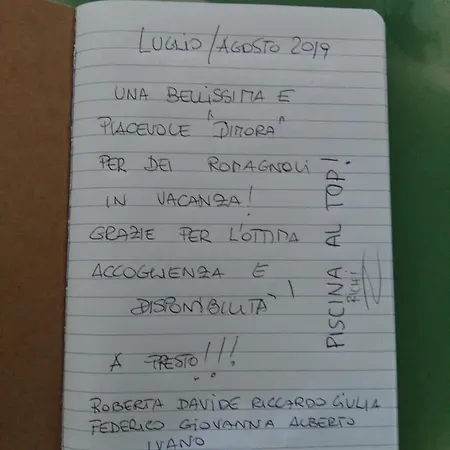 LUGLIO/AGOSTO 2019
UNA BELLISSIMA E
PIACEVOLE "DIMORA"
PER DEI ROMAGNOLI
IN VACANZA!
GRAZIE PER L'OTTIMA
ACCOGLIENZA E
DISPONIBILITÀ!
A PRESTO!!!
ROBERTA DAVIDE RICCARDO GIULIA
FEDERICO GIOVANNA ALBERTO
IVANO
PISCINA AL TOP!